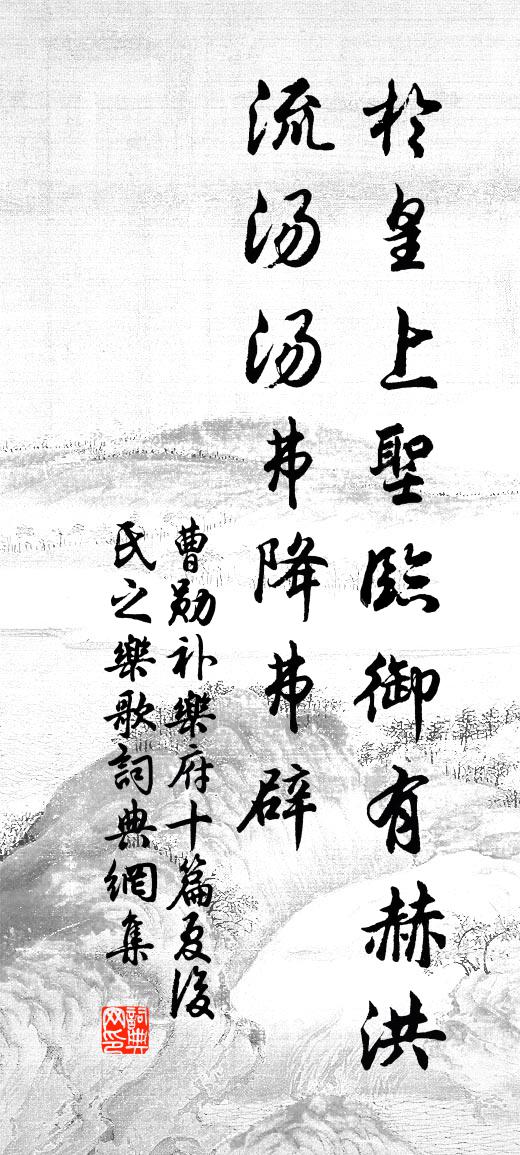 於皇上聖臨御有赫洪
流汤汤弗降弗辟
曹勛补樂府十篇夏後
氏之樂歌詞典網集
詞典網印